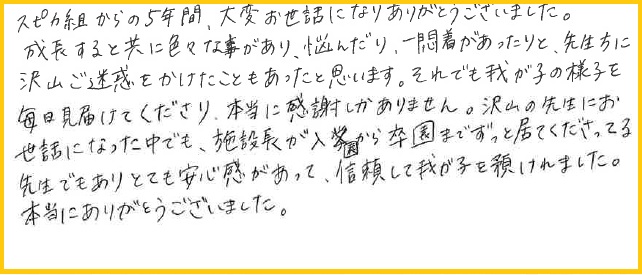 スピカ組からの5年間、大変お世話になりありがとうございました。
成長すると共に色々な事があり、悩んだり、一悶着があったりと、先生方に
沢山ご迷惑をかけたこともあったと思います。それでも我が子の様子を
毎日見届けてくださり、本当に感謝しかありません。沢山の先生にお
世話になった中でも、施設長が入園から卒園までずっと居てくださってる
先生でもありとても安心感があって、信頼して我が子を預けれました。
本当にありがとうございました。